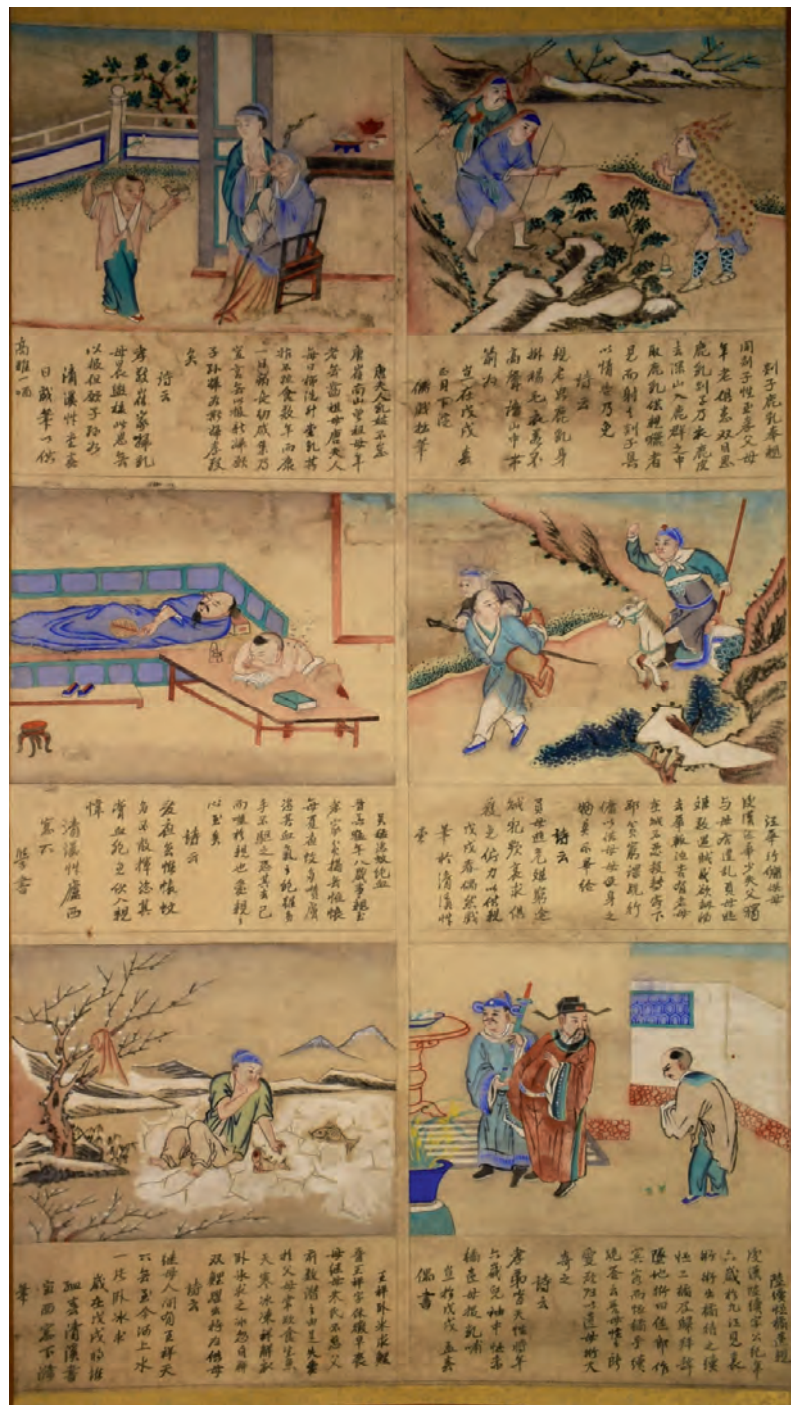 剡子鹿乳奉親
周剡子性至孝父母
年老俱患雙目思
鹿乳剡子乃衣鹿皮
去深山入鹿群之中
取鹿乳供親獵者
見而射之剡子具
以情告乃免
詩云
親老思鹿乳身
掛褐毛衣若不
高聲語山中帶
箭
在戊戌春
正月下浣
偶戲拙筆
唐夫人乳姑不怠
唐崔南山曾祖母年
老無齒祖母唐夫人
每日櫛洗升堂乳其
姑不粒食數年而康
一日病長幼咸集乃
宣言無以報新婦願
子孫婦如新婦孝敬
矣
詩云
孝敬崔家婦乳
母晨盥梳此恩無
以報但願子孫如
清溪性
日戲筆以供
高雅一哂
江革行傭供母
後漢江革少失父獨
與母居遭亂負母逃
難數遇賊或欲劫將
去革輒泣告有老母
在賊不忍殺轉客下
邳貧窮裸跣行
傭以供母母便身之
物莫不畢給
詩云
負母逃危難窮途
賊犯頻哀求俱
獲免傭力以供親
戊戌春偶爾戲
筆於清溪性
堂
吳猛恣蚊飽血
晉吳猛年八歲事親至
孝家貧榻無帷帳
每夏夜蚊多噆膚
恣其血氣之飽雖多
手不驅之恐其去己
而噬於親也愛親之
心至矣
詩云
夏夜無帷帳蚊
多不敢揮恣其
膏血飽免使入親
幃
清溪性廬西
窗下
學書
陸績懷橘遺親
後漢陸績字公紀年
六歲於九江見袁
術術出橘待之績
懷二橘及歸拜辭
墮地術曰陸郎作
賓客而懷橘乎績
跪答云吾母性之所
愛欲歸以遺母術大
奇之
詩云
孝弟皆天性
六歲兒袖中懷
橘遺母報乳哺
於戊戌孟春
偶書
王祥臥冰求鯉
晉王祥字休徵早喪
母繼母朱氏不慈父
前數譖之由是失愛
於父母常欲食生魚
天寒冰凍祥解衣
臥冰求之冰忽自解
雙鯉躍出持歸供母
詩云
繼母人間有王祥天
下無至今河上水
一片臥冰求
歲在戊戌時維
孟春清溪書
室西窗下塗
筆